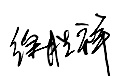 徐胜祥